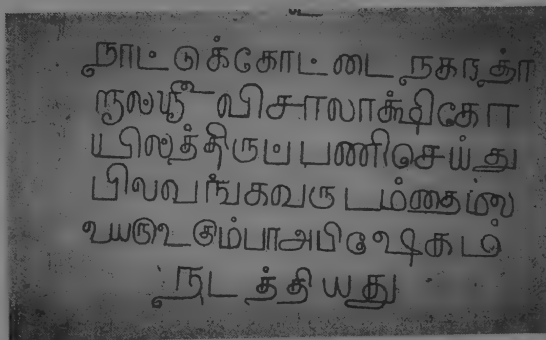 நாட்டுக்கோட்டை நகரத்தா
ரால் ஸ்ரீ விசாலாக்ஷிகோ
யில்த்திருப்பணிசெய்து
பிலவங்கவருடம்
கும்பாஅபிஷேகம்
நடத்தியது